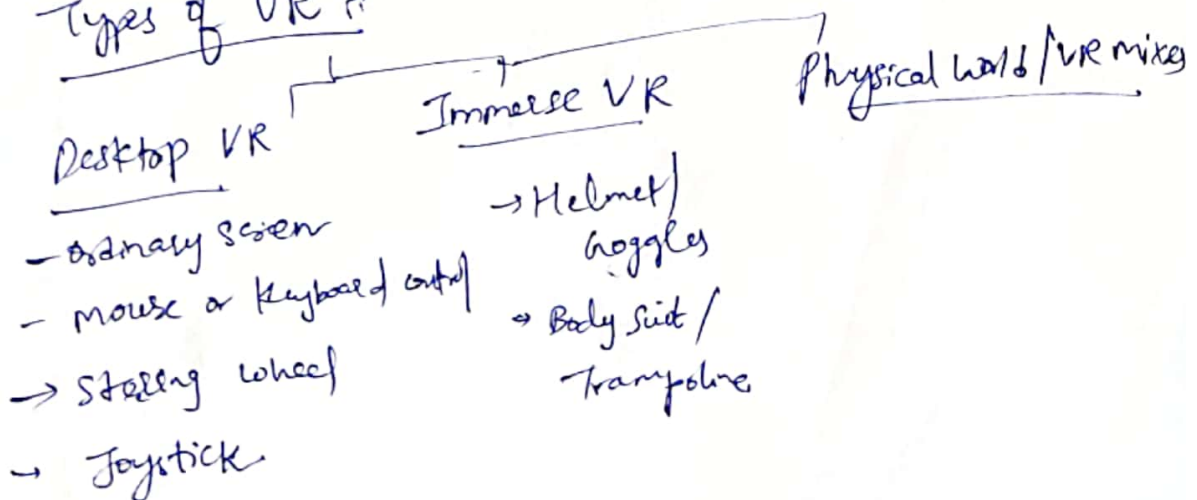 Types of VR :
Desktop VR
- ordinary screen
- mouse or keyboard control
→ Steering wheel
→ Joystick.
Immerse VR
→ Helmet/
Goggles
→ Body Suit/
Trampoline
Physical World/VR mixes